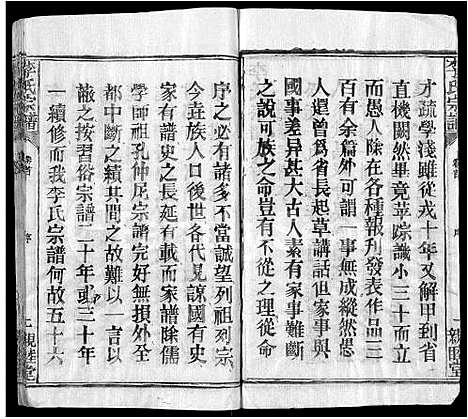 李氏宗譜
卷首
序
親睦堂
才疏學淺雖從戎十年又解甲到省
直機關然畢竟萃踪識小三十而立
虛歷任人除在各種報刊發表作品
百有余篇外可謂一事無成縱然愚
人還曾爲省長起草講話但家事與
國事差异甚大古人云有家事難斷
之說可楼命豈有不從之理從命
序之必有諸多不當誠望列祖列宗
今垚族人口後世各代見諒國有史
家有譜史之長延有載而家譜除儒
學師祖孔仲尼宗譜完好無損外大
都中斷之續其間之故難以一言以
蔽之按習俗宗譜二十年或三十年
一續修而我李氏宗譜何故五十六
李氏宗譜
卷首
序
親睦堂